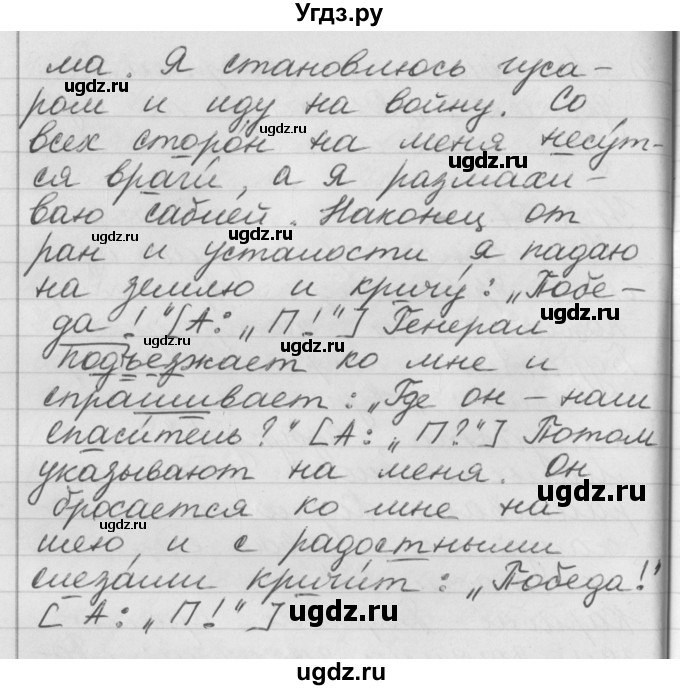 Угдз.ру
ма. Я становлюсь гуса-
ром и иду на войну. Со
всех сторон на меня несут-
ся враги, а я размахи-
ваю саблей. Наконец от
ран и усталости я падаю
на землю и кричу: „Побе-
да!“ [А: „П!“] Генерал
подъезжает ко мне и
спрашивает: „Где он – наш
спаситель?“ [А: „П?“] Потом
указывают на меня. Он
бросается ко мне на
шею и с радостными
слезами кричит: „Победа!“
[А: „П!“]
ugdz.ru
ugdz.ru
ugdz.ru
ugdz.ru
ugdz.ru
ugdz.ru
ugdz.ru
ugdz.ru
ugdz.ru
ugdz.ru
ugdz.ru
ugdz.ru
ugdz.ru